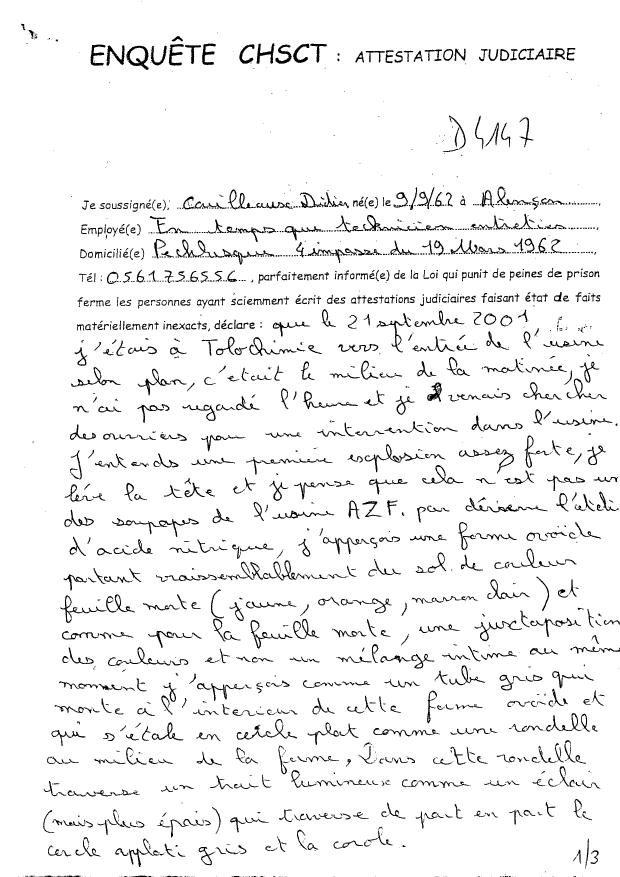 ENQUÊTE CHSCT : ATTESTATION JUDICIAIRE
D4147
Je soussigné(e), Couilleaux Didier né(e) le 9/9/62 à Alençon
Employé(e) En temps que technicien entretien
Domicilié(e) Pechbusque 4 impasse du 19 Mars 1962
Tél : 0561756556, parfaitement informé(e) de la Loi qui punit de peines de prison
ferme les personnes ayant sciemment écrit des attestations judiciaires faisant état de faits
matériellement inexacts, déclare : que le 21 septembre 2001
j'étais à Tolochimie vers l'entrée de l'usine
selon plan, c'etait le milieu de la matinée, je
n'ai pas regardé l'heure et je venais chercher
des ouvriers pour une intervention dans l'usine.
J'entends une première explosion assez forte, je
lève la tête et je pense que cela n'est pas un
des soupapes de l'usine AZF. par derriere l'ateli
d'acide nitrique, j'apperçois une forme ovoïde
partant vraissemblablement du sol de couleur
feuille morte (jaune, orange, marron clair) et
comme pour la feuille morte, une juxtaposition
des couleurs et non un mélange intime au même
momment j'apperçois comme un tube gris qui
monte à l'interieur de cette forme ovoïde et
qui s'étale en cercle plat comme une rondelle
au milieu de la forme, Dans cette rondelle
traverse un trait lumineux comme un éclair
(mais plus épais) qui traverse de part en part le
cercle applati gris et la corole.
1/3